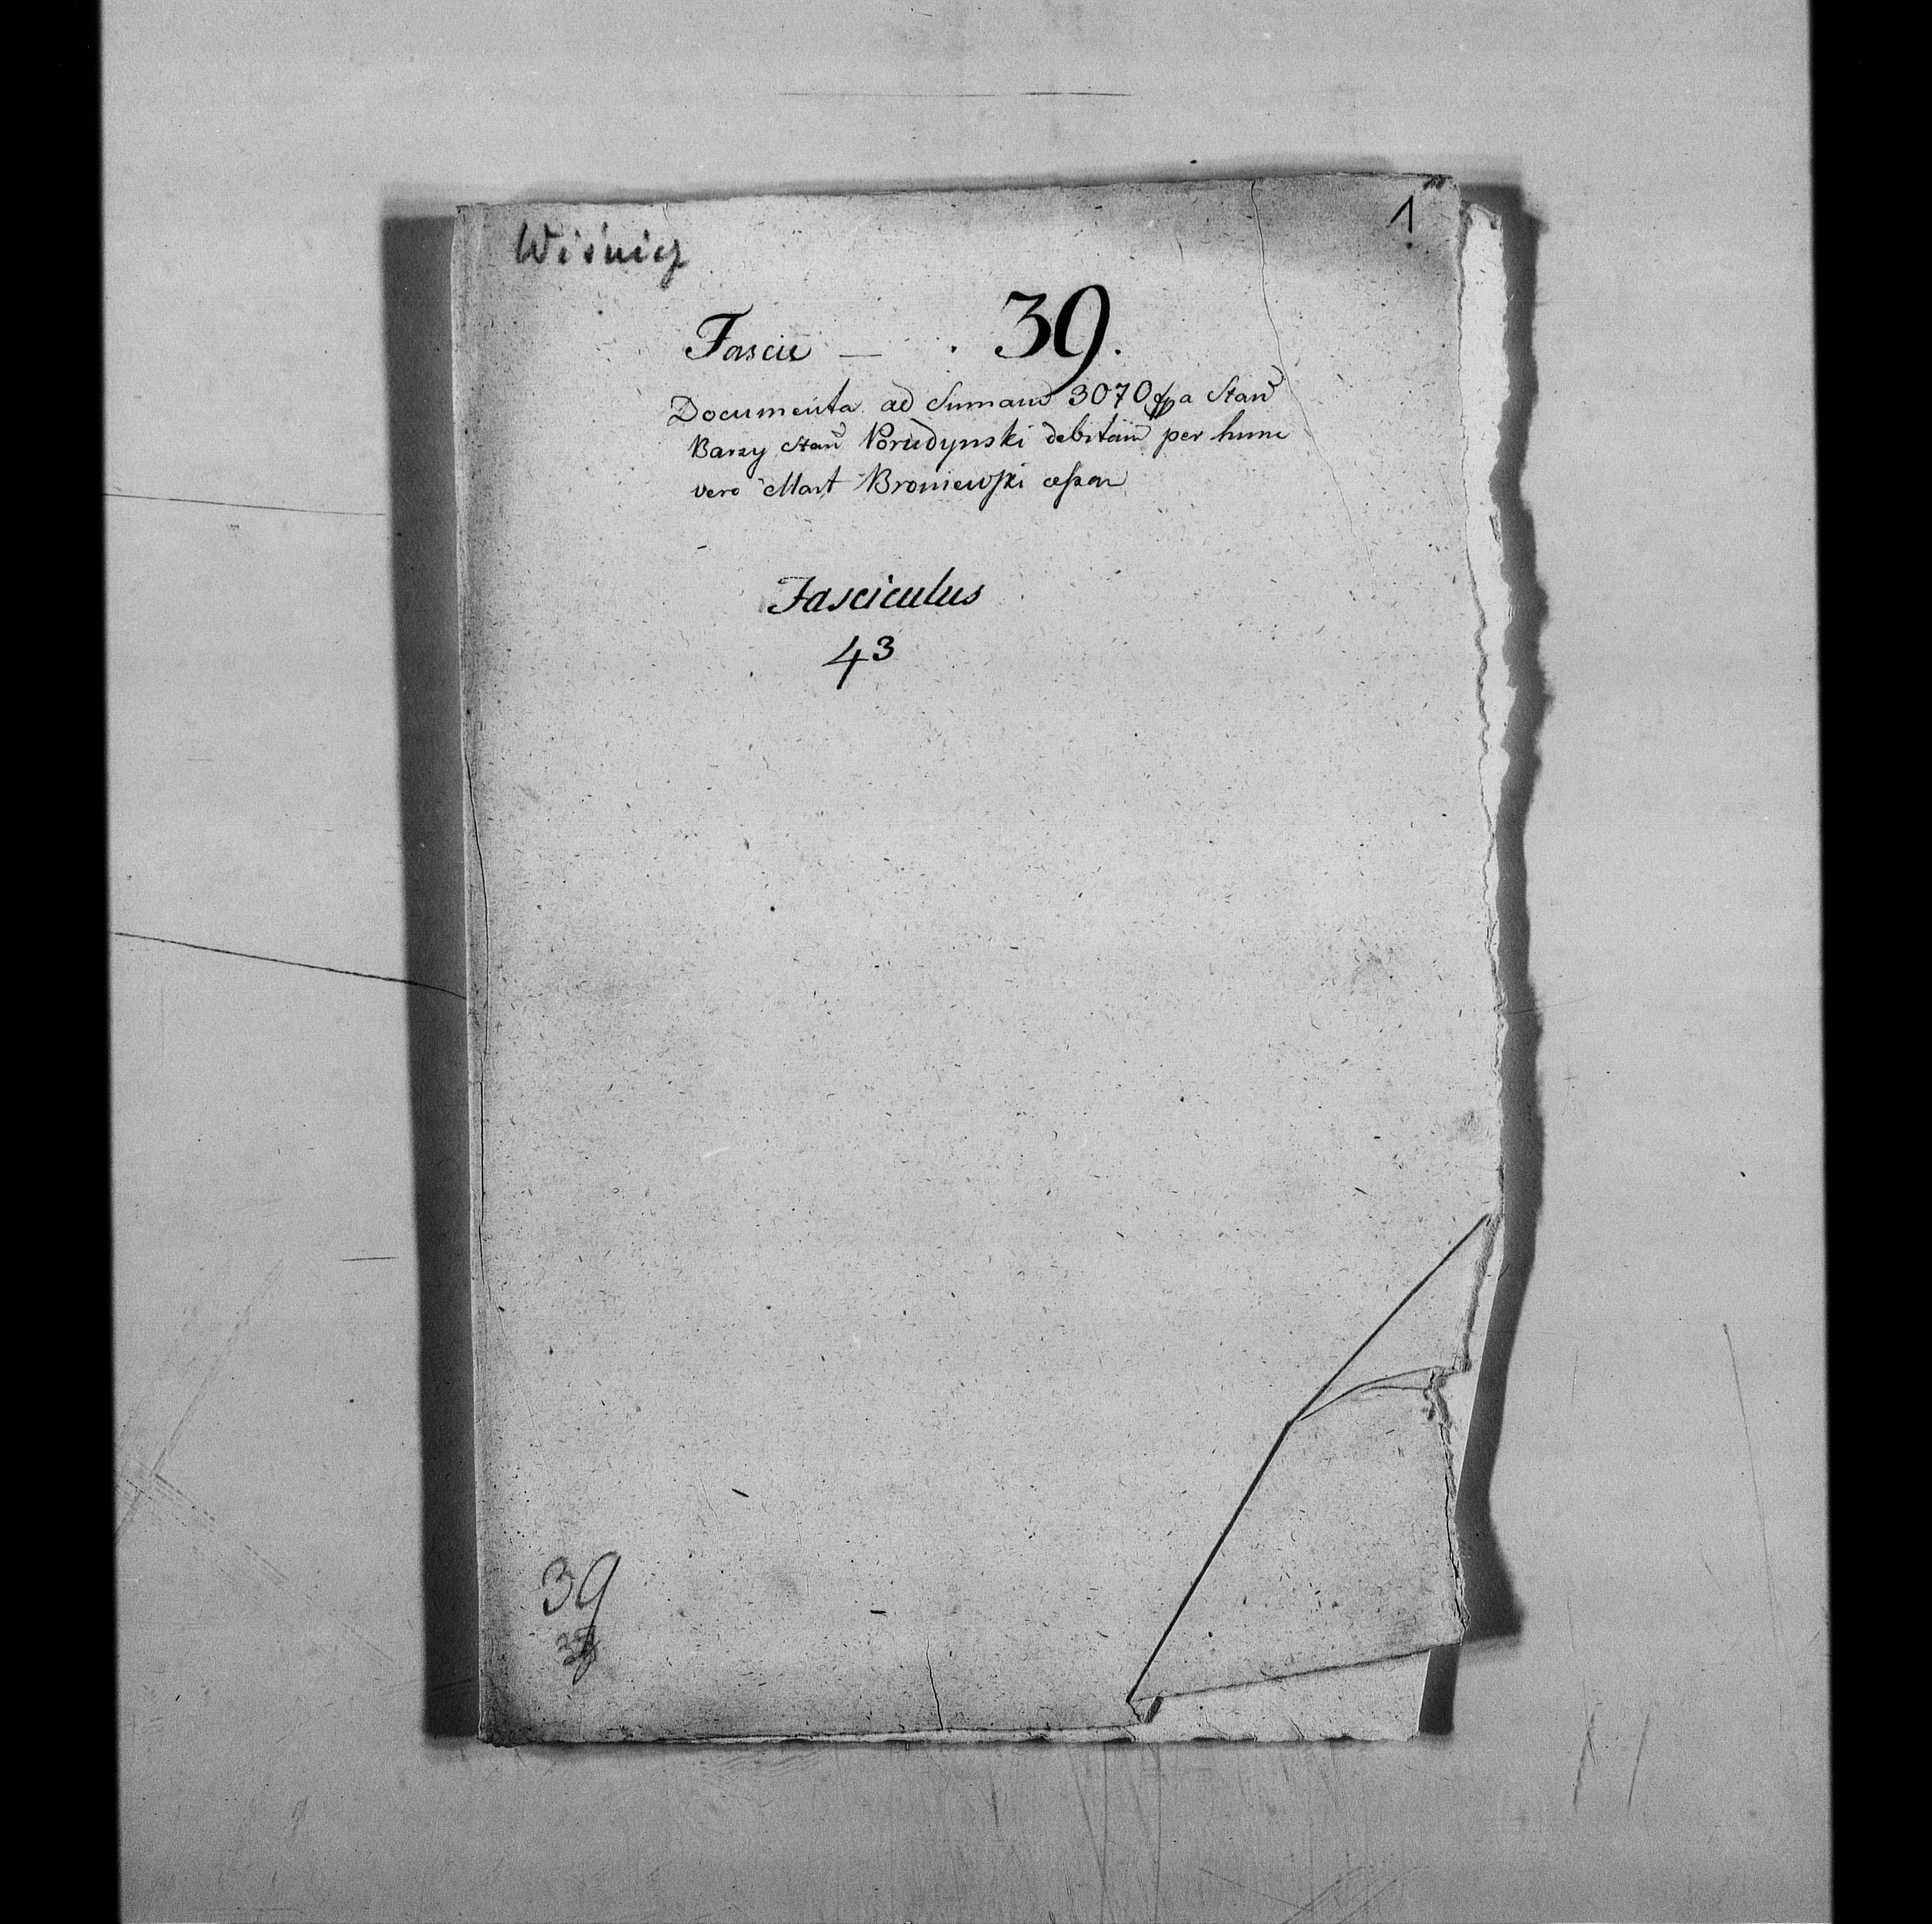 Wiśnicz
1
Fascic — . 39.
Documenta ad Summam 3070 fp a Stan
Barzy Stan Porudynski debitam per hunc
vero Mart Broniewski cessam
Fasciculus
43
39